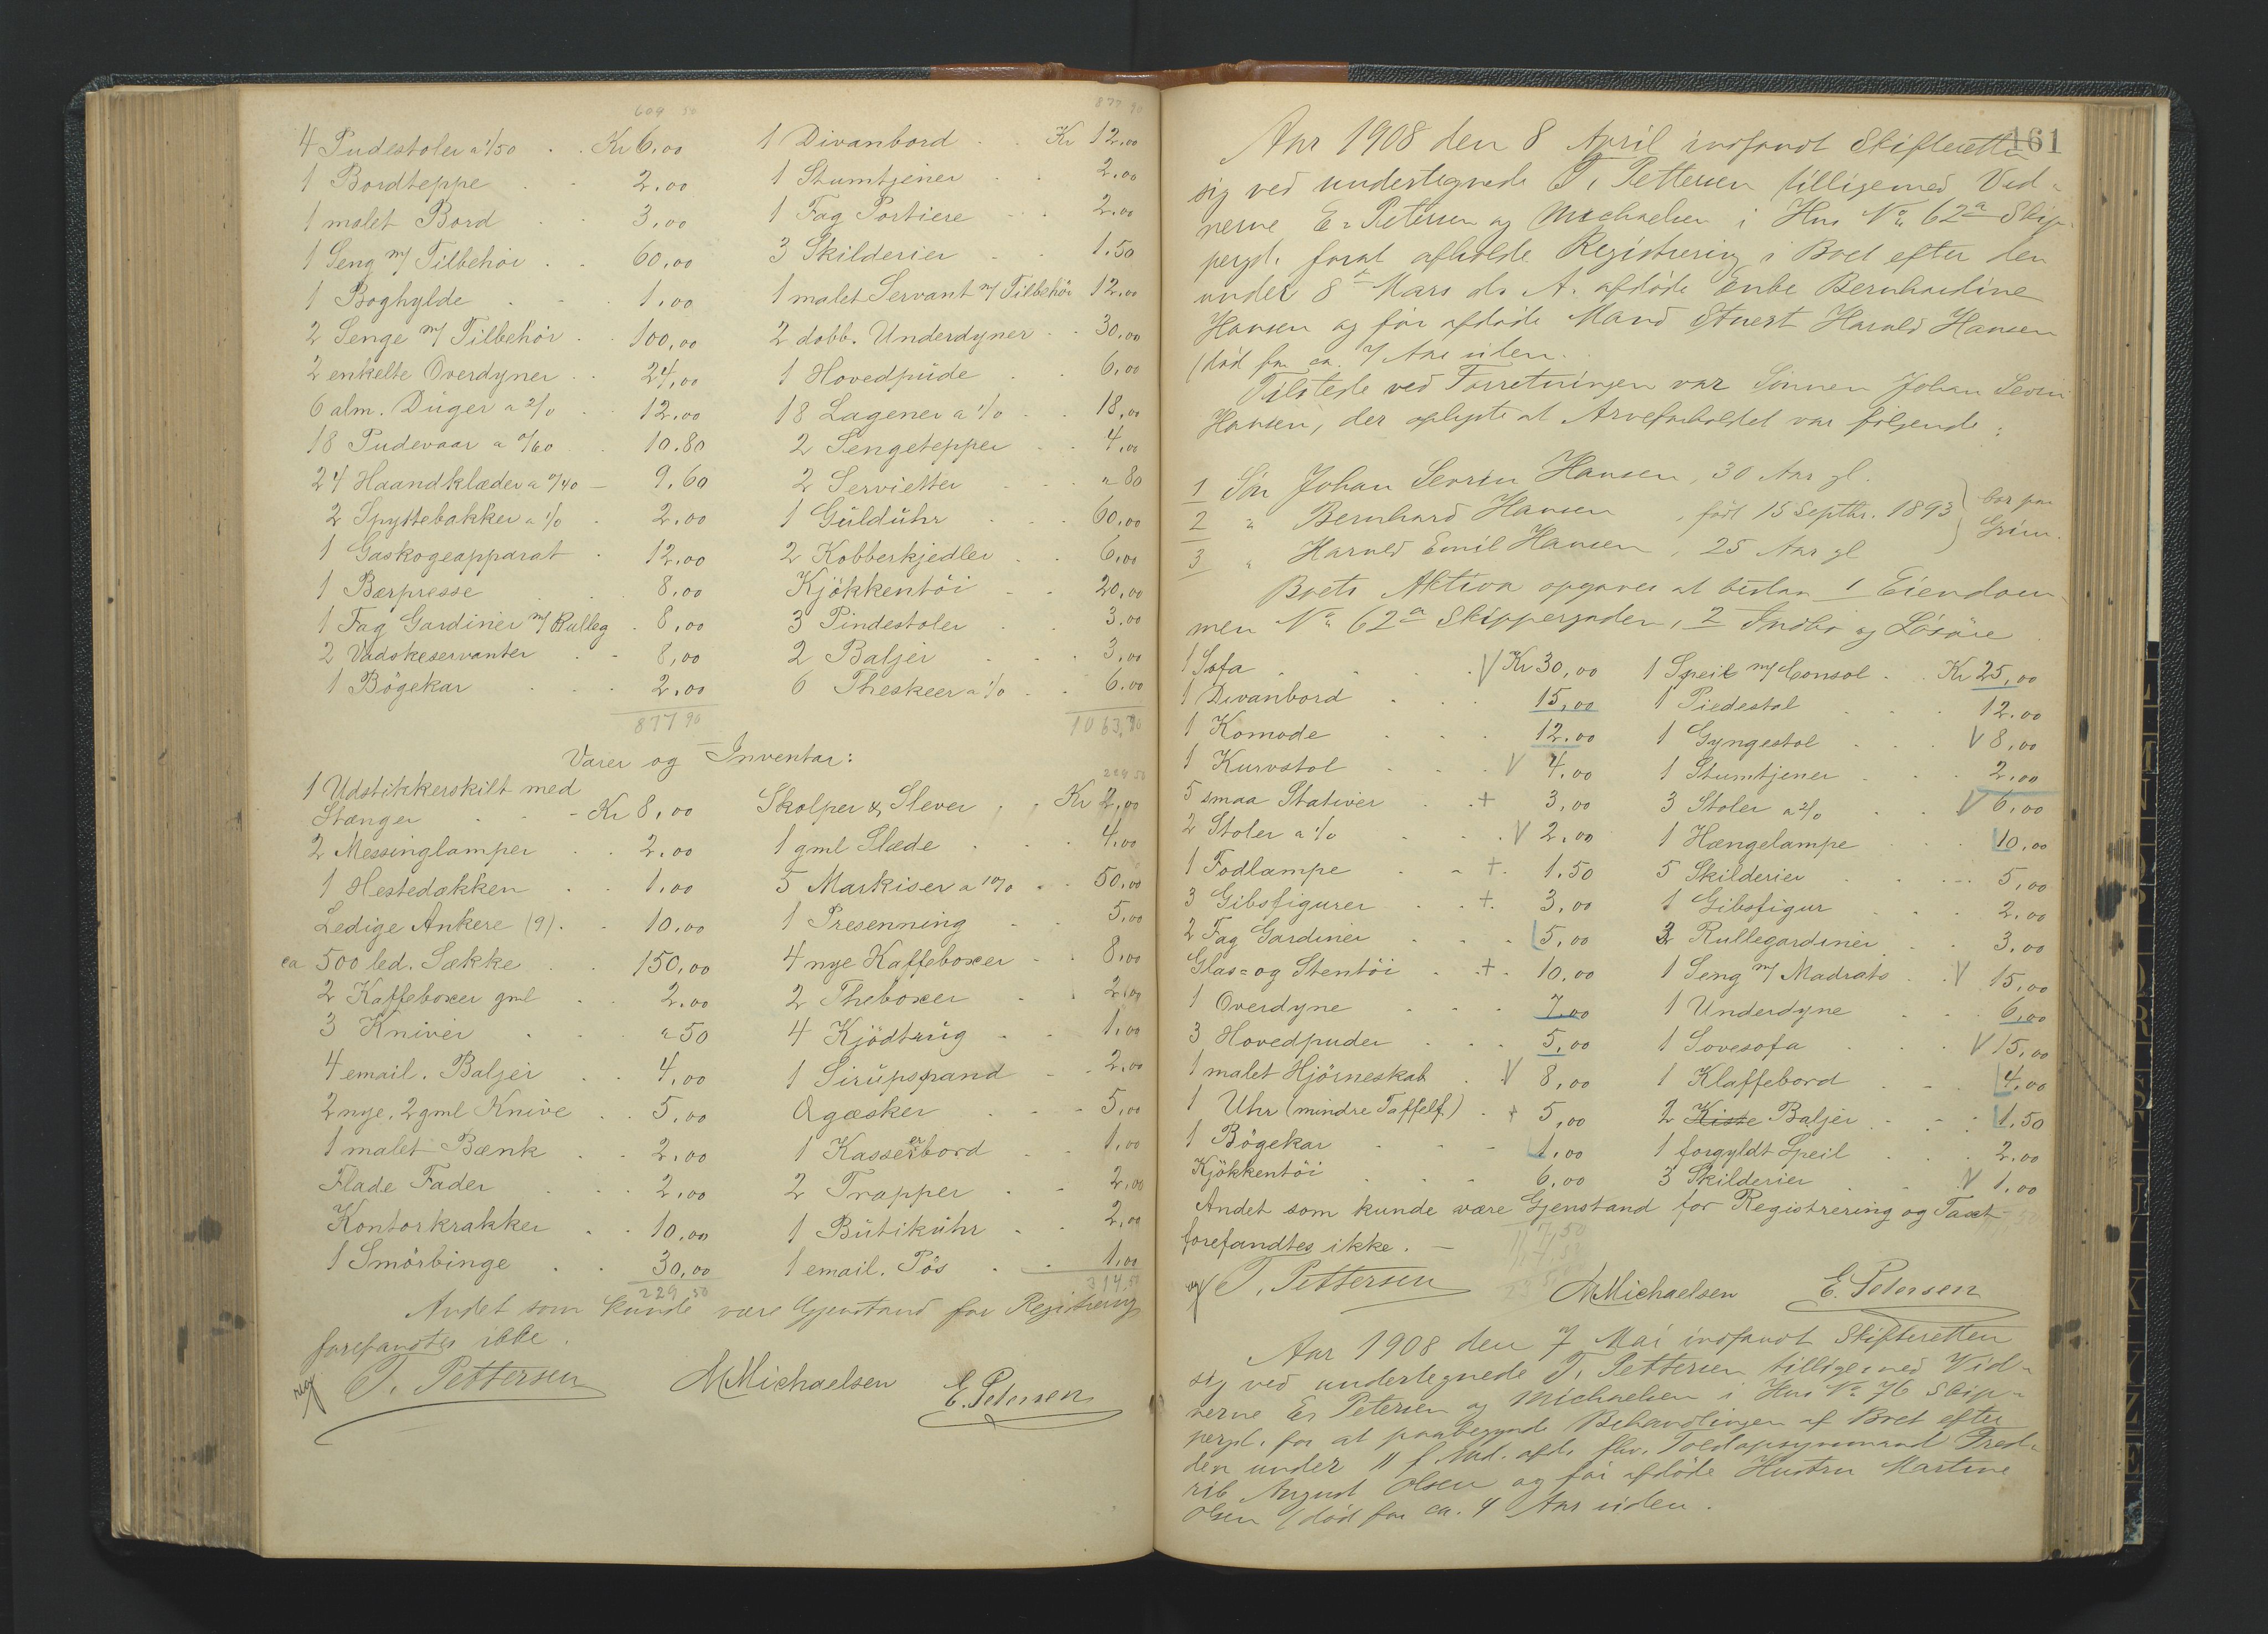 609 50
4 Pudestoler a 1/50 . . Kr 6,00
1 Bordteppe . . 2,00
1 malet Bord . . 3,00
1 Seng m/ Tilbehör . . 60,00
1 Boghylde . . . 1,00
2 Senge m/ Tilbehör . . 100,00
2 enkelte Overdyner . . 24,00
6 alm. Duger a 2/0 . . 12,00
18 Pudevaar a 0/60 . 10.80
24 Haandklæder a 0/40 — 9,60
2 Spyttebakker a 1/0 . 2,00
1 Gaskogeapparat . 12,00
1 Bærpresse . . 8,00
1 Fag Gardiner m/ Rulleg . 8,00
2 Vadskeservanter . . 8,00
1 Bögekar . . . 2,00
877 90
877 90
1 Divanbord . . Kr 12,00
1 Stumtjener . . 2,00
1 Fag Portiere . . . 2,00
3 Skilderier . . 1.50
1 malet Servant m/ Tilbehör 12,00
2 dobb. Underdyner . . 30,00
1 Hovedpude . . 6,00
18 Lagener a 1/0 . . 18,00
2 Sengetepper . . 4,00
2 Servietter . . . " 80
1 Guldühr . . . 60,00
2 Kobberkjedler . . 6,00
Kjökkentöi . . 20,00
3 Pindestoler . . 3,00
2 Baljer . . . 3,00
6 Theskeer a 1/0 . . 6,00
1063,70
Varer og Inventar:
1 Udstikkerskilt med
Stænger . . - Kr 8,00
2 Messinglamper . . 2,00
1 Hestedækken . . 1,00
Ledige Ankere (9). . 10,00
ca 500 led. Sække . . 150,00
2 Kaffeboxer gml . . 2,00
3 Kniver . . . " 50
4 email. Baljer . . 4,00
2 nye, 2 gml Knive . . 5,00
1 malet Bænk . . 2,00
Flade Fader . . . 2,00
Kontorkrakker . . 10,00
1 Smörbinge . . 30,00
229 50
229 50
Skolper & Slever , , Kr 2,00
1 gml Slæde . . . 4,00
5 Markiser a 10/0 . . 50,00
1 Presenning . . 5,00
4 nye Kaffeboxer . . 8,00
2 Theboxer . . 2,00
4 Kjödtrüg . . 1,00
1 Sirüpsspand . . 2,00
Ogæsker . . . 5,00
1 Kasserbord . . 1,00
2 Trapper . . 2,00
1 Bütikühr . . 2,00
1 email. Pös . . 1,00
314,50
Andet som kunde være Gjenstand for Registrering
forefandtes ikke.
T. Pettersen MMichaelsen E. Petersen
161
Aar 1908 den 8 April indfandt Skifteretten
sig ved undertegnede T. Pettersen tilligemed Vid-
nerne E. Petersen og Michaelsen i Hus No 62a Skip-
pergd. forat afholde Registrering i Boet efter den
under 8de Mars d. A. afdöde Enke Bernhardine
Hansen og för afdöde Mand Stuert Harald Hansen
(död for ca. 7 Aar siden.
Tilstede ved Forretningen var Sönnen Johan Severin
Hansen, der oplyste at Arveforholdet var fölgende:
1 Sön Johan Severin Hansen, 30 Aar gl.
2 " Bernhard Hansen, född 15 Septbr. 1893
3 " Harald Emil Hansen, 25 Aar gl
bor paa
Grim.
Boets Aktiva opgaves at bestaa 1 Eiendom-
men No 62a Skippergaden, 2 Indbo og Lösöre
1 Sofa . . . V Kr 30,00
1 Divanbord . . . 15,00
1 Komode . . . 12.00
1 Kurvstol . . V 4.00
5 smaa Stativer . . + 3,00
2 Stoler a 1/0 . . V 2,00
1 Fodlampe . . + . 1.50
3 Gibsfigurer . . + . 3,00
2 Fag Gardiner . . . 5,00
Glas= og Stentöi . . + . 10,00
1 Overdyne . . . 7.00
3 Hovedpuder . . . 5,00
1 malet Hjörneskab . V 8,00
1 Uhr (mindre Taffelf.) . + 5,00
1 Bögekar . . . 1,00
Kjökkentöi . . . 6,00
1 Speil m/ Consol . . Kr 25,00
1 Piedestal . . . 12.00
1 Gyngestol . . . V 8,00
1 Stumtjener . . . 2,00
3 Stoler a 2/0 . . V 6,00
1 Hængelampe . . . 10,00
5 Skilderier . . . 5,00
1 Gibsfigur . . . 2,00
2 Rullegardiner . . 3,00
1 Seng m/ Madrats . . V 15,00
1 Underdyne . . . 6,00
1 Sovesofa . . . V 15,00
1 Klaffebord . . . 4,00
2 Kiste Baljer . . . 1.50
1 forgyldt Speil . . . 2,00
3 Skilderier . . V 1,00
Andet som kunde være Gjenstand for Registrering og Taxt
forefandtes ikke. —
T. Pettersen MMichaelsen E. Petersen
Aar 1908 den 7 Mai indfandt Skifteretten
sig ved undertegnede T. Pettersen tilligemed Vid-
nerne E. Petersen og Michaelsen i Hus No 76 Skip-
pergd. for at paabegynde Behandlingen af Boet efter
den under 11 f. Md. afd. fhv. Toldopsynsmand Fred-
rik August Olsen og för afdöde Hustru Martine
Olsen (död for ca. 4 Aar siden.